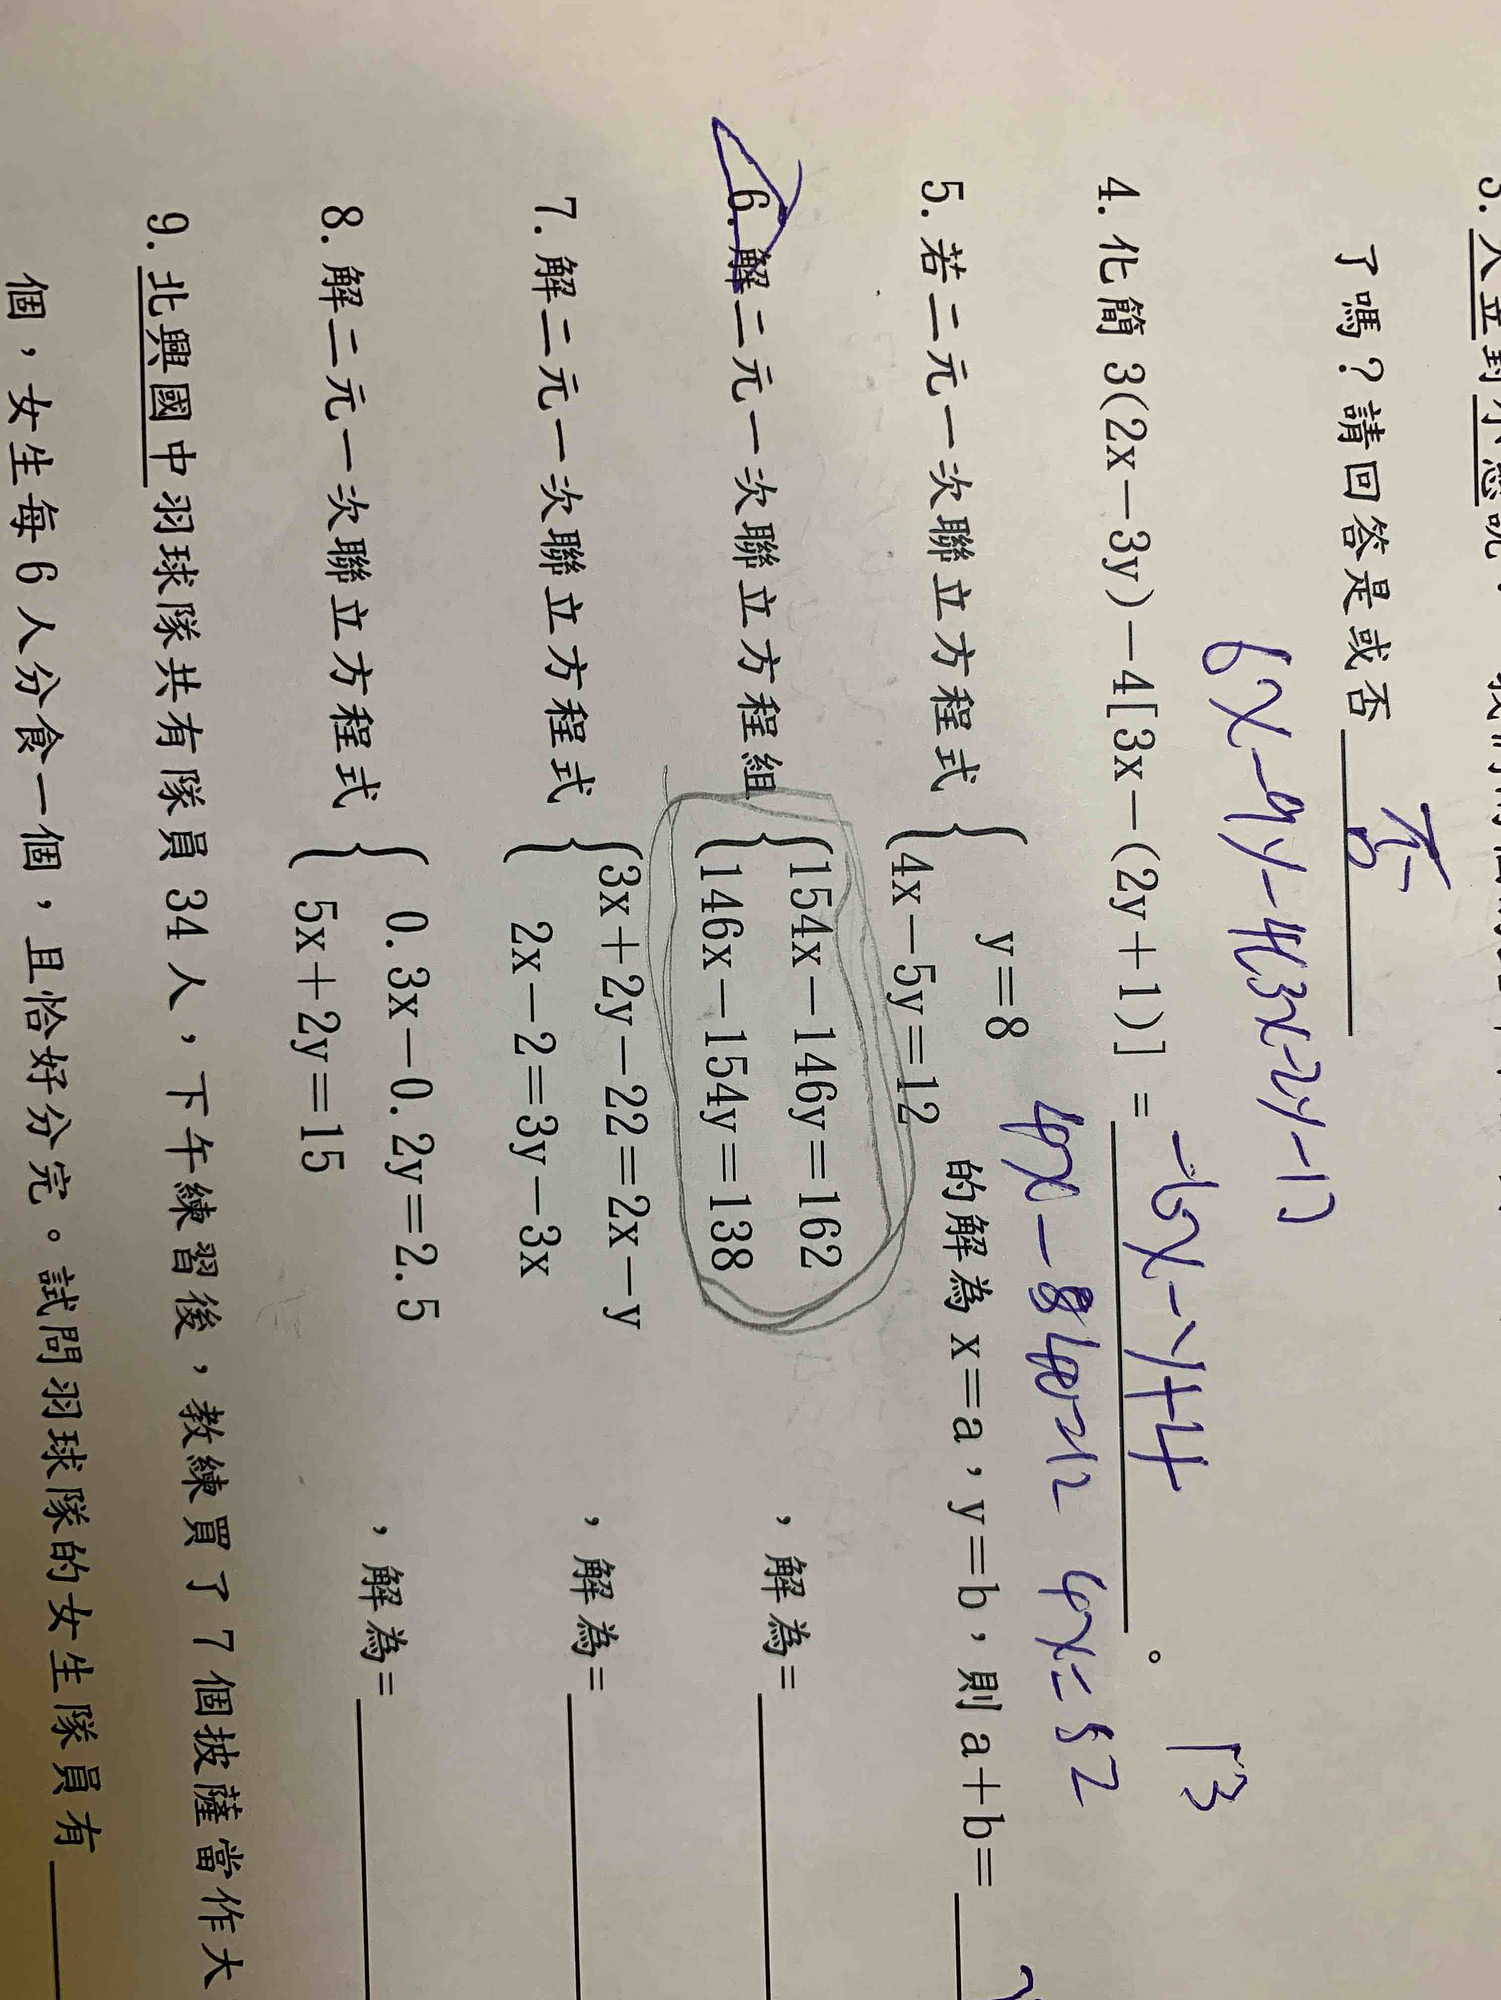 3.
了嗎？請回答是或否 否
6x-9y-4(3x-2y-1)
4.化簡 3(2x－3y)－4[3x－(2y＋1)] = -6x-y+4 。
y＝8
5.若二元一次聯立方程式 { 4x－5y＝12 的解為 x＝a，y＝b，則 a＋b＝
4x-8 40=12 4x=52 13
154x－146y＝162
6.解二元一次聯立方程組 { 146x－154y＝138 ，解為=
3x＋2y－22＝2x－y
7.解二元一次聯立方程式 { 2x－2＝3y－3x ，解為=
0.3x－0.2y＝2.5
8.解二元一次聯立方程式 { 5x＋2y＝15 ，解為=
9.北興國中羽球隊共有隊員 34 人，下午練習後，教練買了 7 個披薩當作大
個，女生每 6 人分食一個，且恰好分完。試問羽球隊的女生隊員有